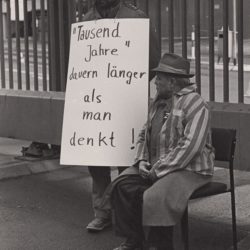 "Tausend
Jahre"
dauern länger
als
man
denkt !